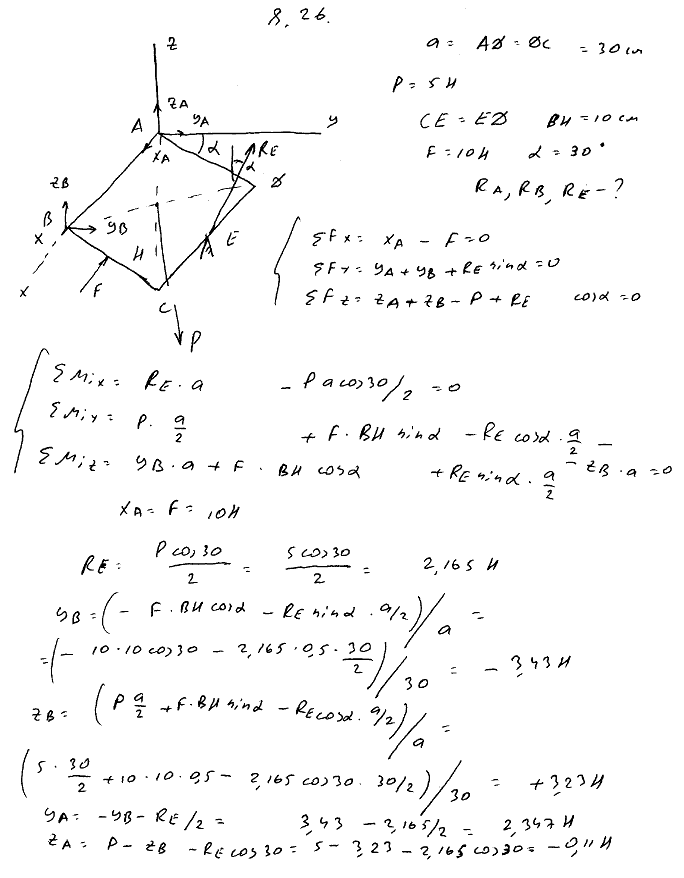 8, 26.
a = AD = DC = 30 cm
P = 5 H
CE = ED BH = 10 cm
F = 10 H α = 30°
RA, RB, RE - ?
Z
ZA
YA
y
A
XA
α
RE
α
D
ZB
B
YB
X
x
H
E
F
C
P
ΣFx = XA - F = 0
ΣFY = YA + YB + RE sinα = 0
ΣFZ = ZA + ZB - P + RE cosα = 0
ΣMix = RE · a - P a cos30/2 = 0
ΣMiy = P · a/2 + F · BH sinα - RE cosα · a/2 -
- ZB · a = 0
ΣMiz = YB · a + F · BH cosα + RE sinα · a/2
XA = F = 10H
RE = P cos30 / 2 = 5 cos30 / 2 = 2,165 H
YB = (- F · BH cosα - RE sinα · a/2) / a =
= (- 10 · 10 cos30 - 2,165 · 0,5 · 30/2) / 30 = - 3,43 H
ZB = (P a/2 + F · BH sinα - RE cosα · a/2) / a =
(5 · 30/2 + 10 · 10 · 0,5 - 2,165 cos30 · 30/2) / 30 = +3,23 H
YA = -YB - RE/2 = 3,43 - 2,165/2 = 2,347 H
ZA = P - ZB - RE cos30 = 5 - 3,23 - 2,165 cos30 = -0,11 H